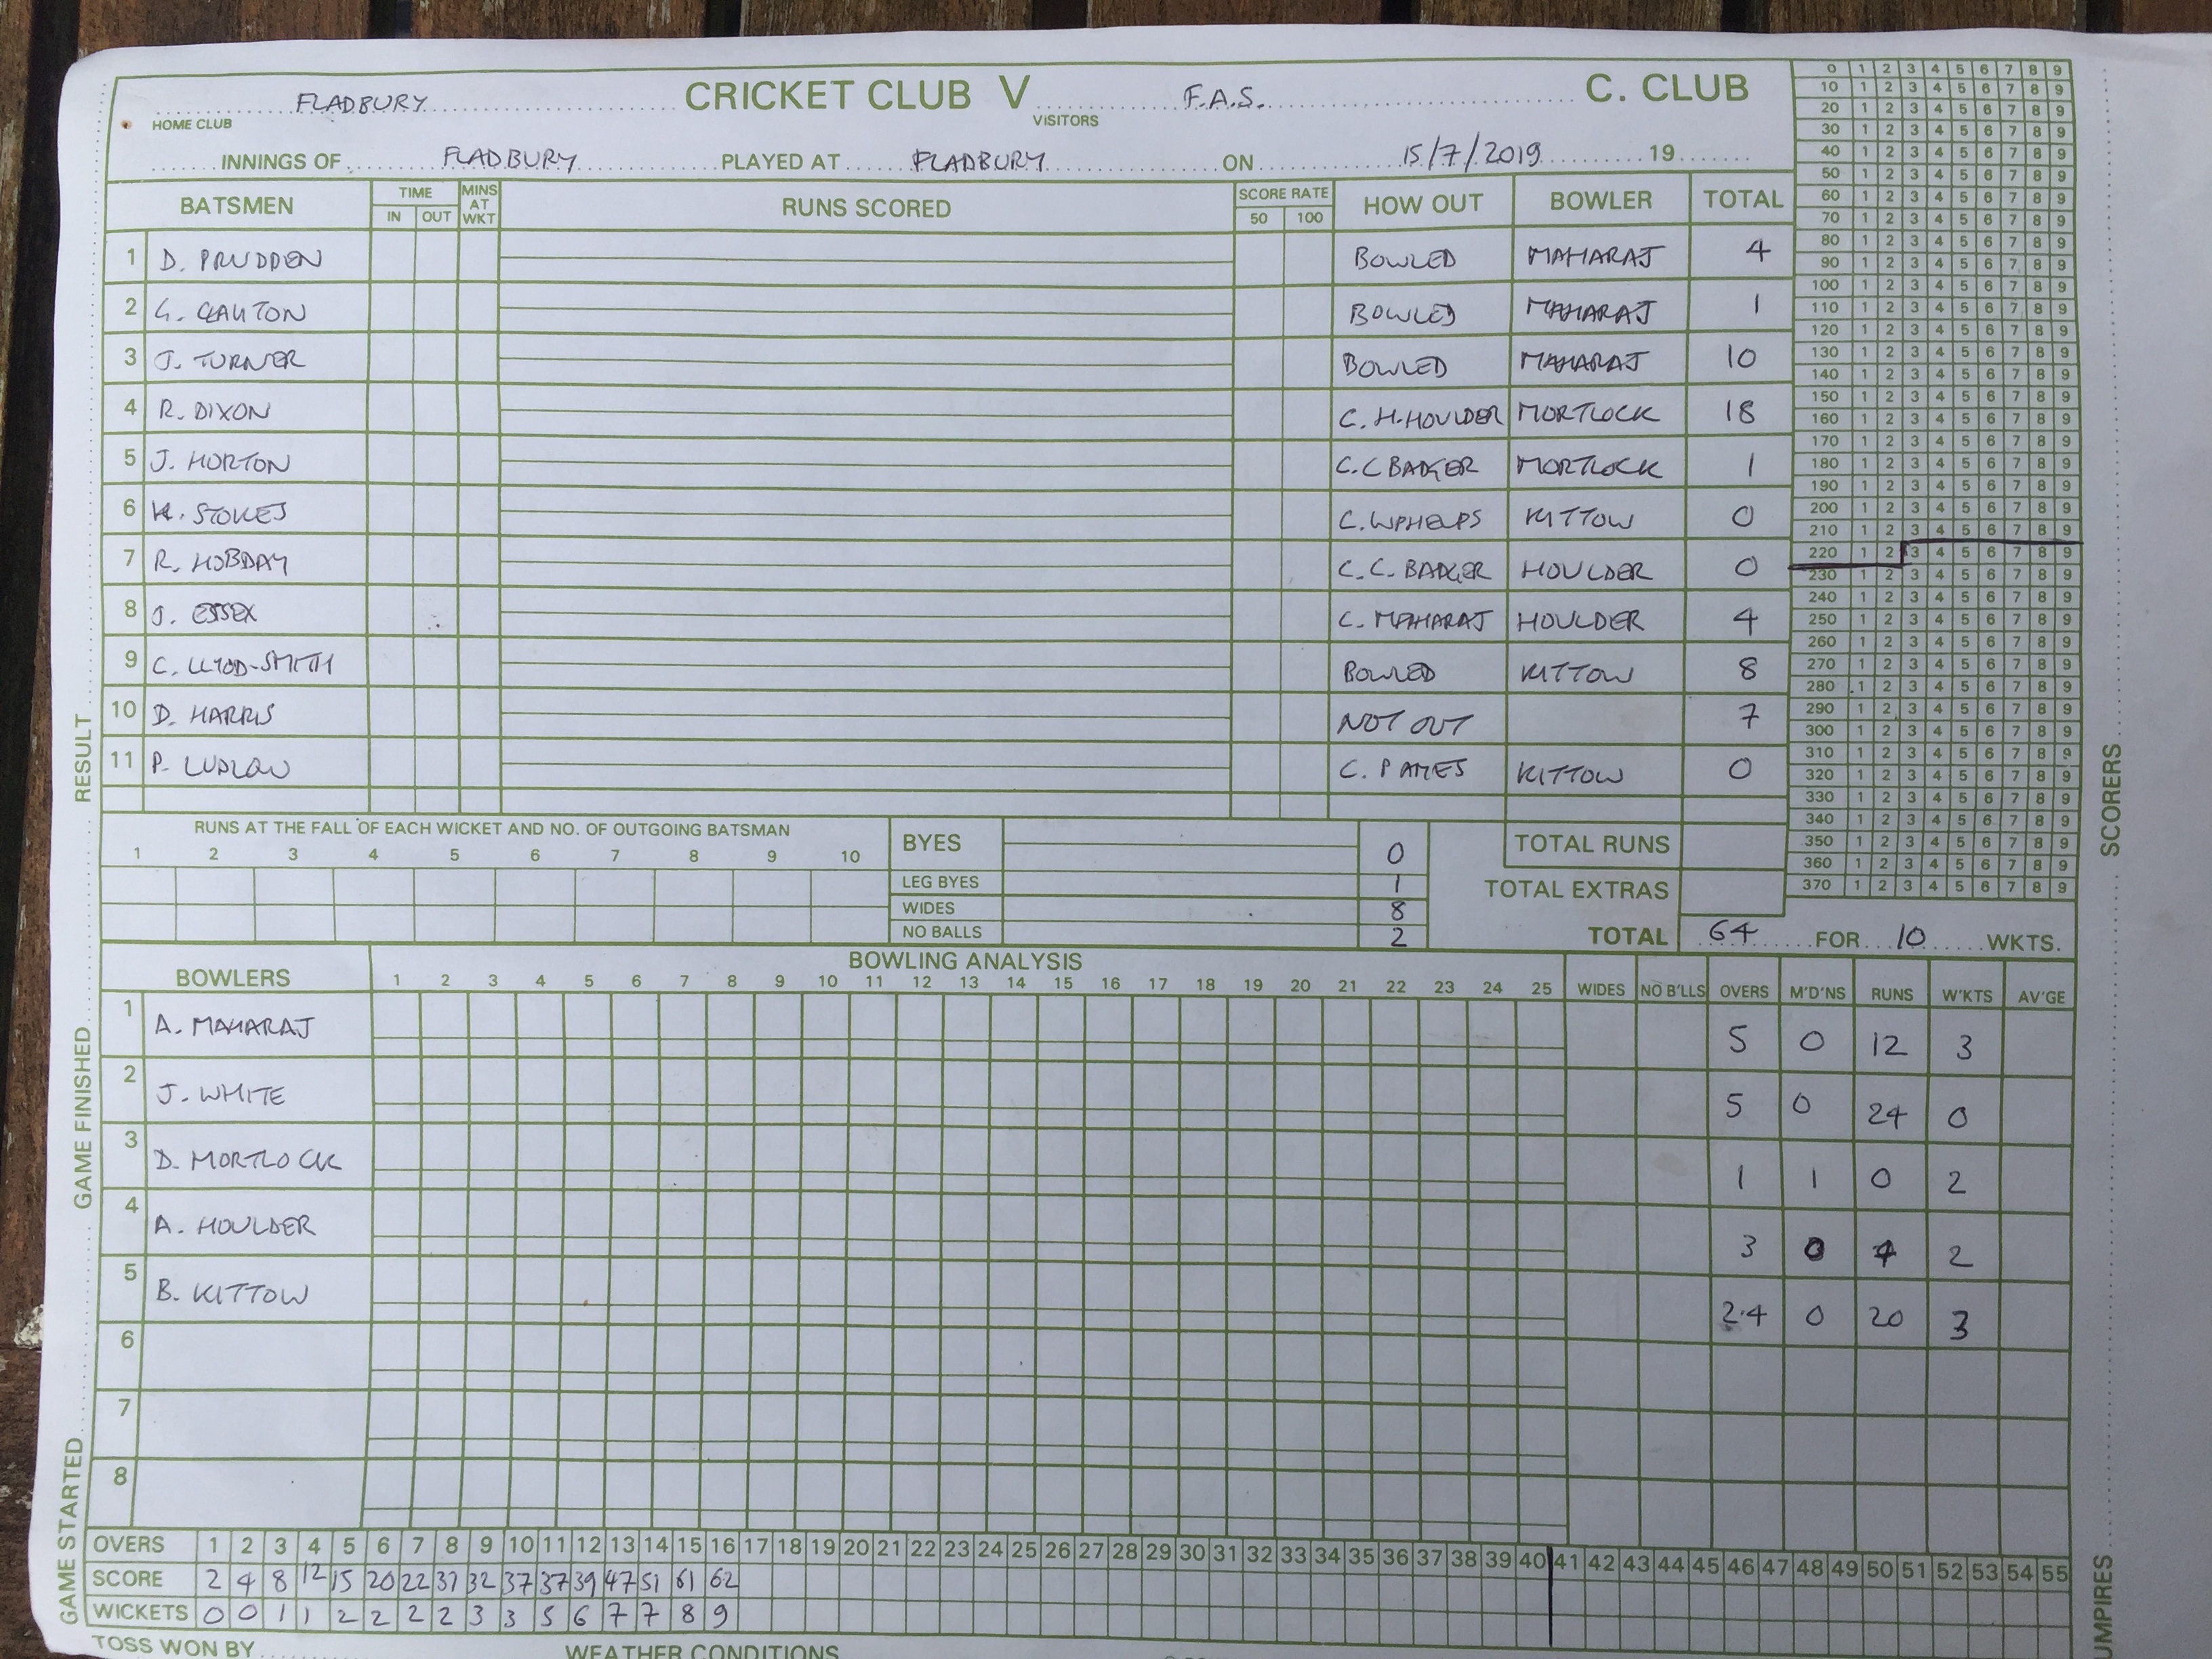 FLADBURY CRICKET CLUB V F.A.S. C. CLUB
HOME CLUB VISITORS
INNINGS OF FLADBURY PLAYED AT FLADBURY ON 15/7/2019 19
BATSMEN TIME IN OUT MINS AT WKT RUNS SCORED SCORE RATE 50 100 HOW OUT BOWLER TOTAL
1 D. PRUDDEN BOWLED MAHARAJ 4
2 G. CLAYTON BOWLED MAHARAJ 1
3 J. TURNER BOWLED MAHARAJ 10
4 R. DIXON C. H. HOULDER MORTLOCK 18
5 J. HORTON C. C BADGER MORTLOCK 1
6 K. STOKES C. W PHELPS KITTOW 0
7 R. HOBDAY C. C. BADGER HOULDER 0
8 J. ESSEX C. MAHARAJ HOULDER 4
9 C. LLYOD-SMITH BOWLED KITTOW 8
10 D. HARRIS NOT OUT 7
11 P. LUDLOW C. P AMES KITTOW 0
0 1 2 3 4 5 6 7 8 9
10 1 2 3 4 5 6 7 8 9
20 1 2 3 4 5 6 7 8 9
30 1 2 3 4 5 6 7 8 9
40 1 2 3 4 5 6 7 8 9
50 1 2 3 4 5 6 7 8 9
60 1 2 3 4 5 6 7 8 9
70 1 2 3 4 5 6 7 8 9
80 1 2 3 4 5 6 7 8 9
90 1 2 3 4 5 6 7 8 9
100 1 2 3 4 5 6 7 8 9
110 1 2 3 4 5 6 7 8 9
120 1 2 3 4 5 6 7 8 9
130 1 2 3 4 5 6 7 8 9
140 1 2 3 4 5 6 7 8 9
150 1 2 3 4 5 6 7 8 9
160 1 2 3 4 5 6 7 8 9
170 1 2 3 4 5 6 7 8 9
180 1 2 3 4 5 6 7 8 9
190 1 2 3 4 5 6 7 8 9
200 1 2 3 4 5 6 7 8 9
210 1 2 3 4 5 6 7 8 9
220 1 2 3 4 5 6 7 8 9
230 1 2 3 4 5 6 7 8 9
240 1 2 3 4 5 6 7 8 9
250 1 2 3 4 5 6 7 8 9
260 1 2 3 4 5 6 7 8 9
270 1 2 3 4 5 6 7 8 9
280 1 2 3 4 5 6 7 8 9
290 1 2 3 4 5 6 7 8 9
300 1 2 3 4 5 6 7 8 9
310 1 2 3 4 5 6 7 8 9
320 1 2 3 4 5 6 7 8 9
330 1 2 3 4 5 6 7 8 9
340 1 2 3 4 5 6 7 8 9
350 1 2 3 4 5 6 7 8 9
360 1 2 3 4 5 6 7 8 9
370 1 2 3 4 5 6 7 8 9
RUNS AT THE FALL OF EACH WICKET AND NO. OF OUTGOING BATSMAN
1 2 3 4 5 6 7 8 9 10
BYES 0 TOTAL RUNS
LEG BYES 1 TOTAL EXTRAS
WIDES 8
NO BALLS 2 TOTAL 64 FOR 10 WKTS.
BOWLERS BOWLING ANALYSIS
1 2 3 4 5 6 7 8 9 10 11 12 13 14 15 16 17 18 19 20 21 22 23 24 25 WIDES NO B'LLS OVERS M'D'NS RUNS W'KTS AV'GE
1 A. MAHARAJ 5 0 12 3
2 J. WHITE 5 0 24 0
3 D. MORTLOCK 1 1 0 2
4 A. HOULDER 3 0 4 2
5 B. KITTOW 2.4 0 20 3
6
7
8
OVERS 1 2 3 4 5 6 7 8 9 10 11 12 13 14 15 16 17 18 19 20 21 22 23 24 25 26 27 28 29 30 31 32 33 34 35 36 37 38 39 40 41 42 43 44 45 46 47 48 49 50 51 52 53 54 55
SCORE 2 4 8 12 15 20 22 31 32 37 37 39 47 51 61 62
WICKETS 0 0 1 1 2 2 2 2 3 3 5 6 7 7 8 9
TOSS WON BY WEATHER CONDITIONS
GAME STARTED GAME FINISHED RESULT
UMPIRES SCORERS